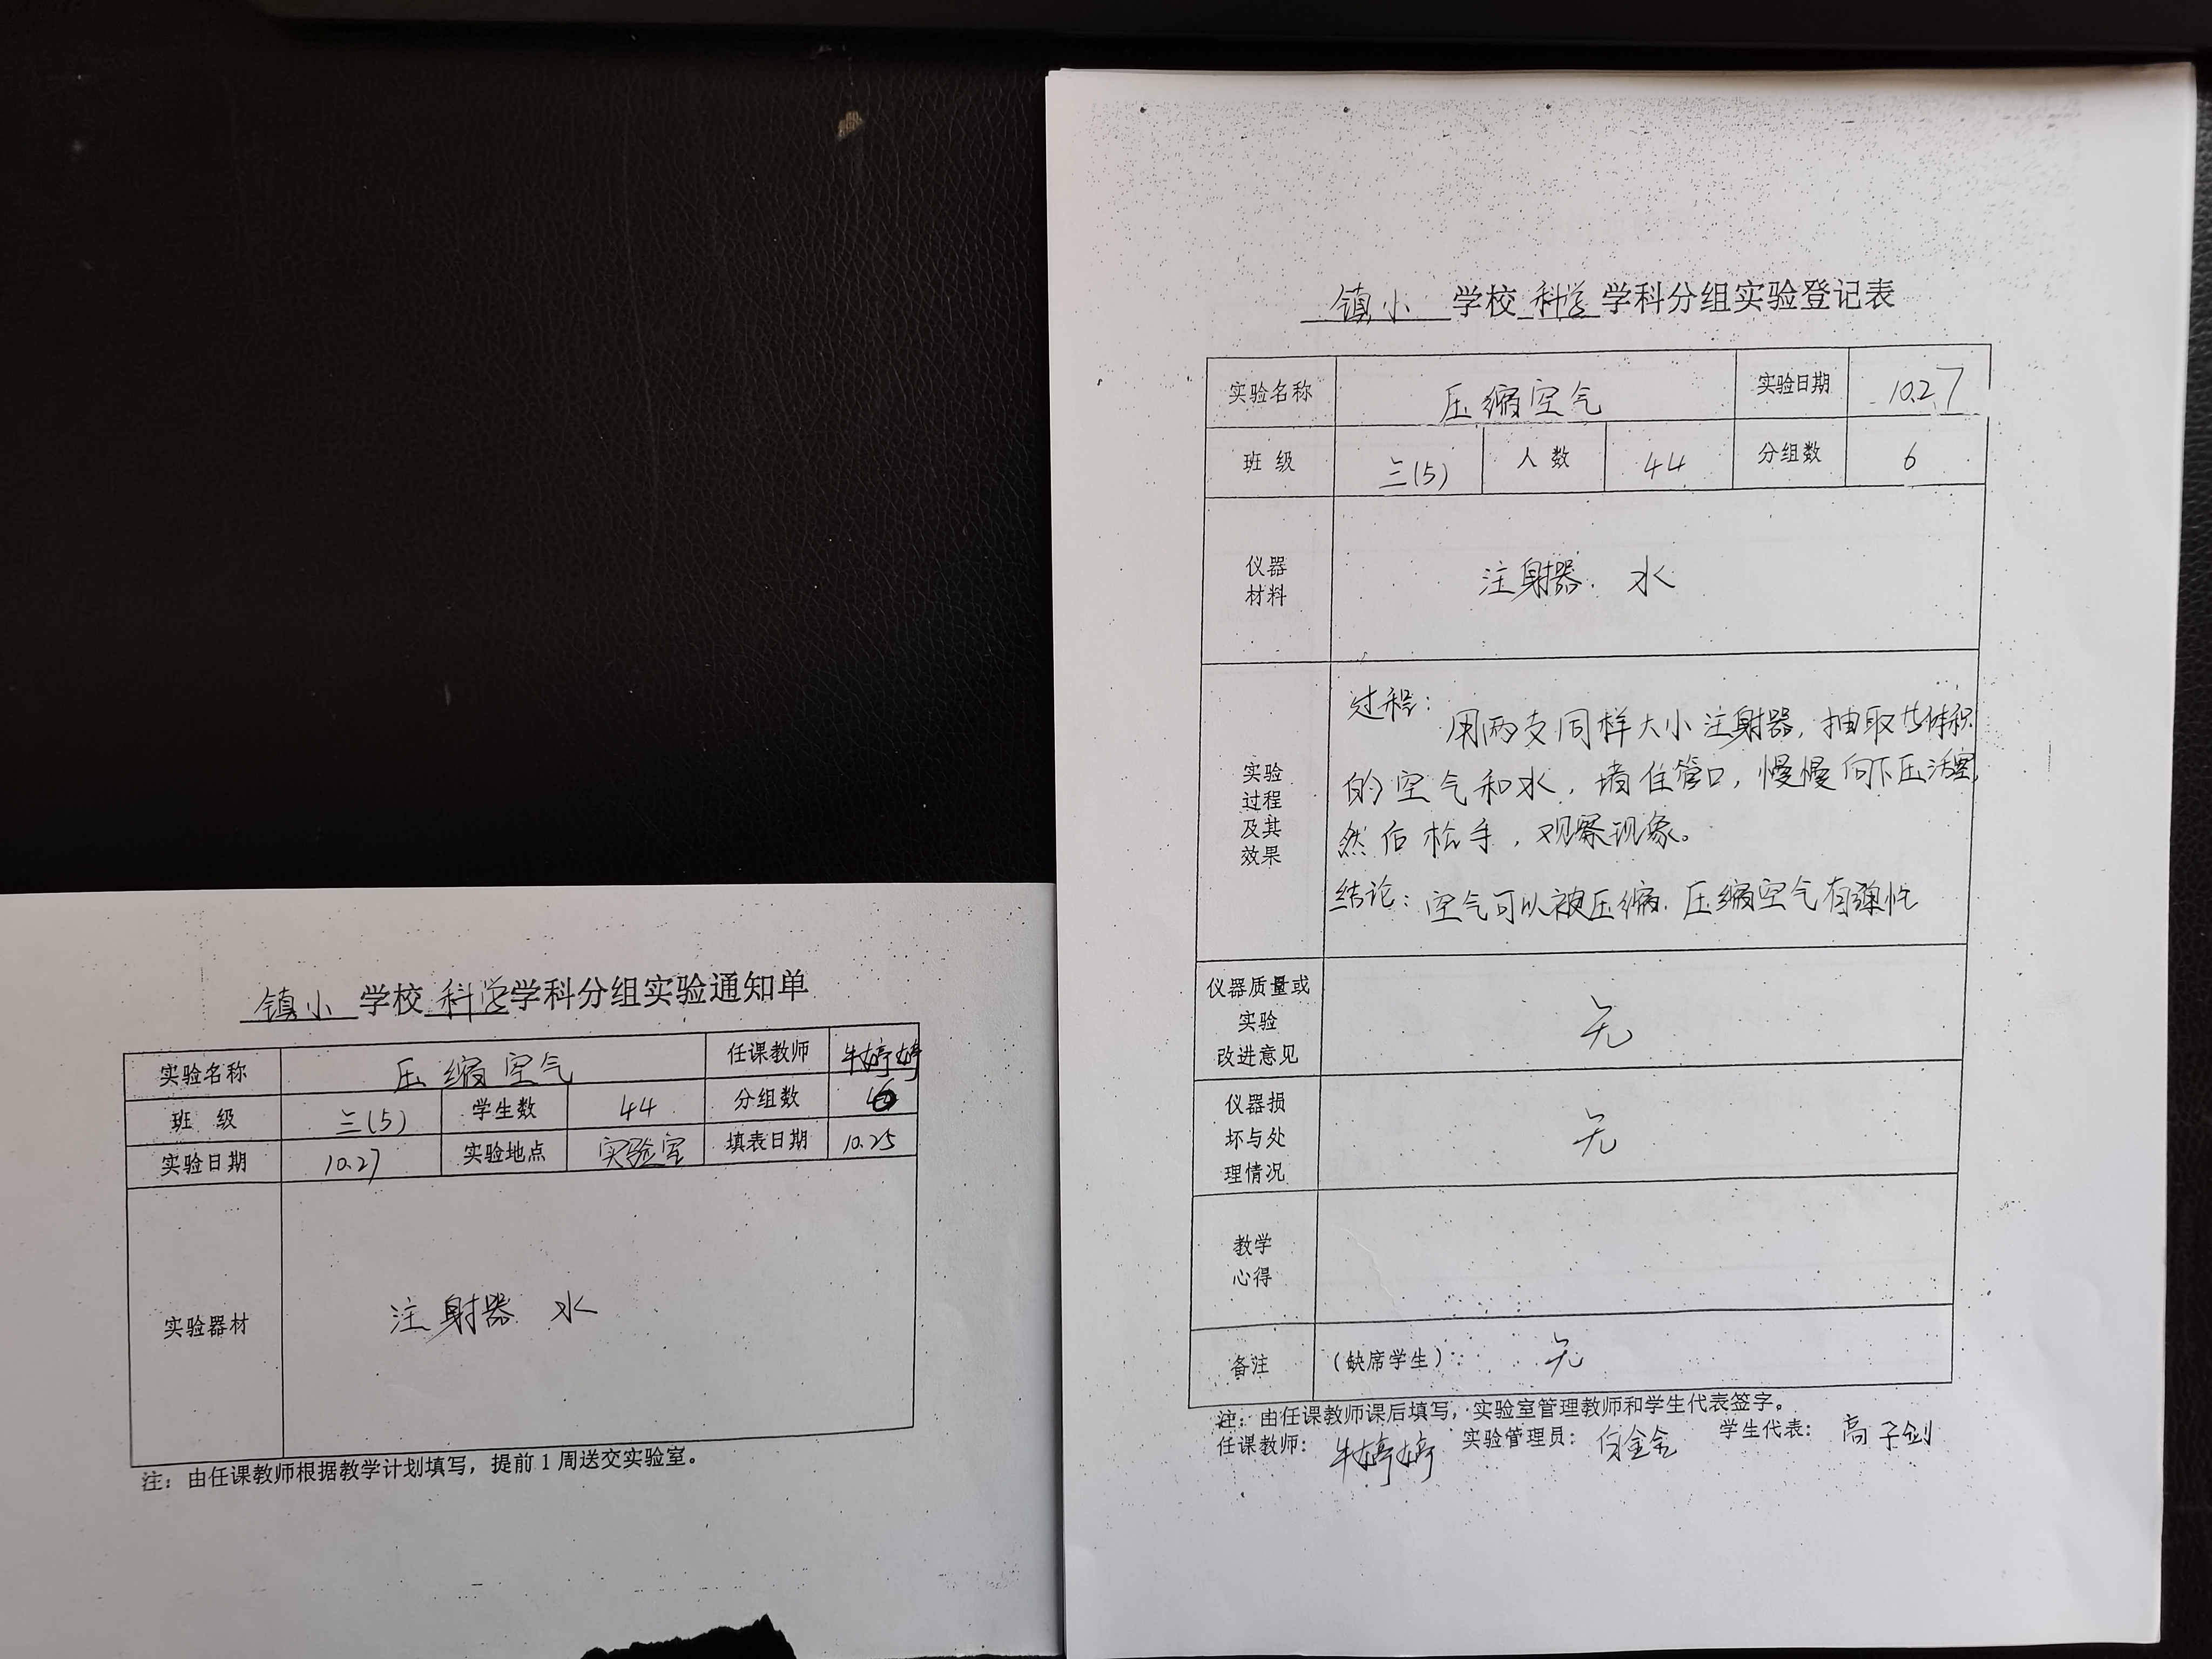 镇小 学校 科学 学科分组实验通知单
实验名称 压缩空气 任课教师 牛婷婷
班 级 三(5) 学生数 44 分组数 6
实验日期 10.27 实验地点 实验室 填表日期 10.25
实验器材 注射器 水
注：由任课教师根据教学计划填写，提前1周送交实验室。
镇小 学校 科学 学科分组实验登记表
实验名称 压缩空气 实验日期 10.27
班 级 三(5) 人 数 44 分组数 6
仪器
材料
注射器. 水
实验
过程
及其
效果
过程：
用两支同样大小注射器，抽取 体积
的空气和水，堵住管口，慢慢向下压活塞，
然后松手，观察现象。
结论：空气可以被压缩. 压缩空气有弹性
仪器质量或
实验
改进意见
无
仪器损
坏与处
理情况
无
教学
心得
备注 （缺席学生）： 无
注：由任课教师课后填写，实验室管理教师和学生代表签字。
任课教师：牛婷婷 实验管理员：白金金 学生代表：高子剑